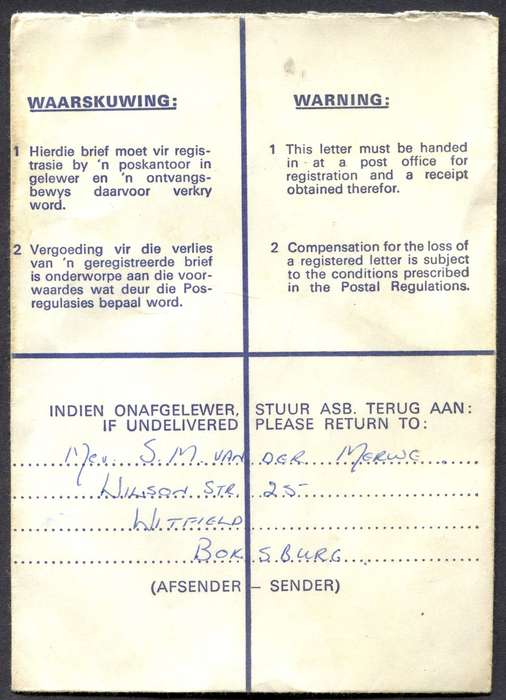 WAARSKUWING:
1 Hierdie brief moet vir regis-
trasie by 'n poskantoor in
gelewer en 'n ontvangs-
bewys daarvoor verkry
word.
2 Vergoeding vir die verlies
van 'n geregistreerde brief
is onderworpe aan die voor-
waardes wat deur die Pos-
regulasies bepaal word.
WARNING:
1 This letter must be handed
in at a post office for
registration and a receipt
obtained therefor.
2 Compensation for the loss of
a registered letter is subject
to the conditions prescribed
in the Postal Regulations.
INDIEN ONAFGELEWER, STUUR ASB. TERUG AAN:
IF UNDELIVERED PLEASE RETURN TO:
Mev. S. M. VAN DER MERWE
WILSON STR. 25
WITFIELD
BOKSBURG
(AFSENDER – SENDER)